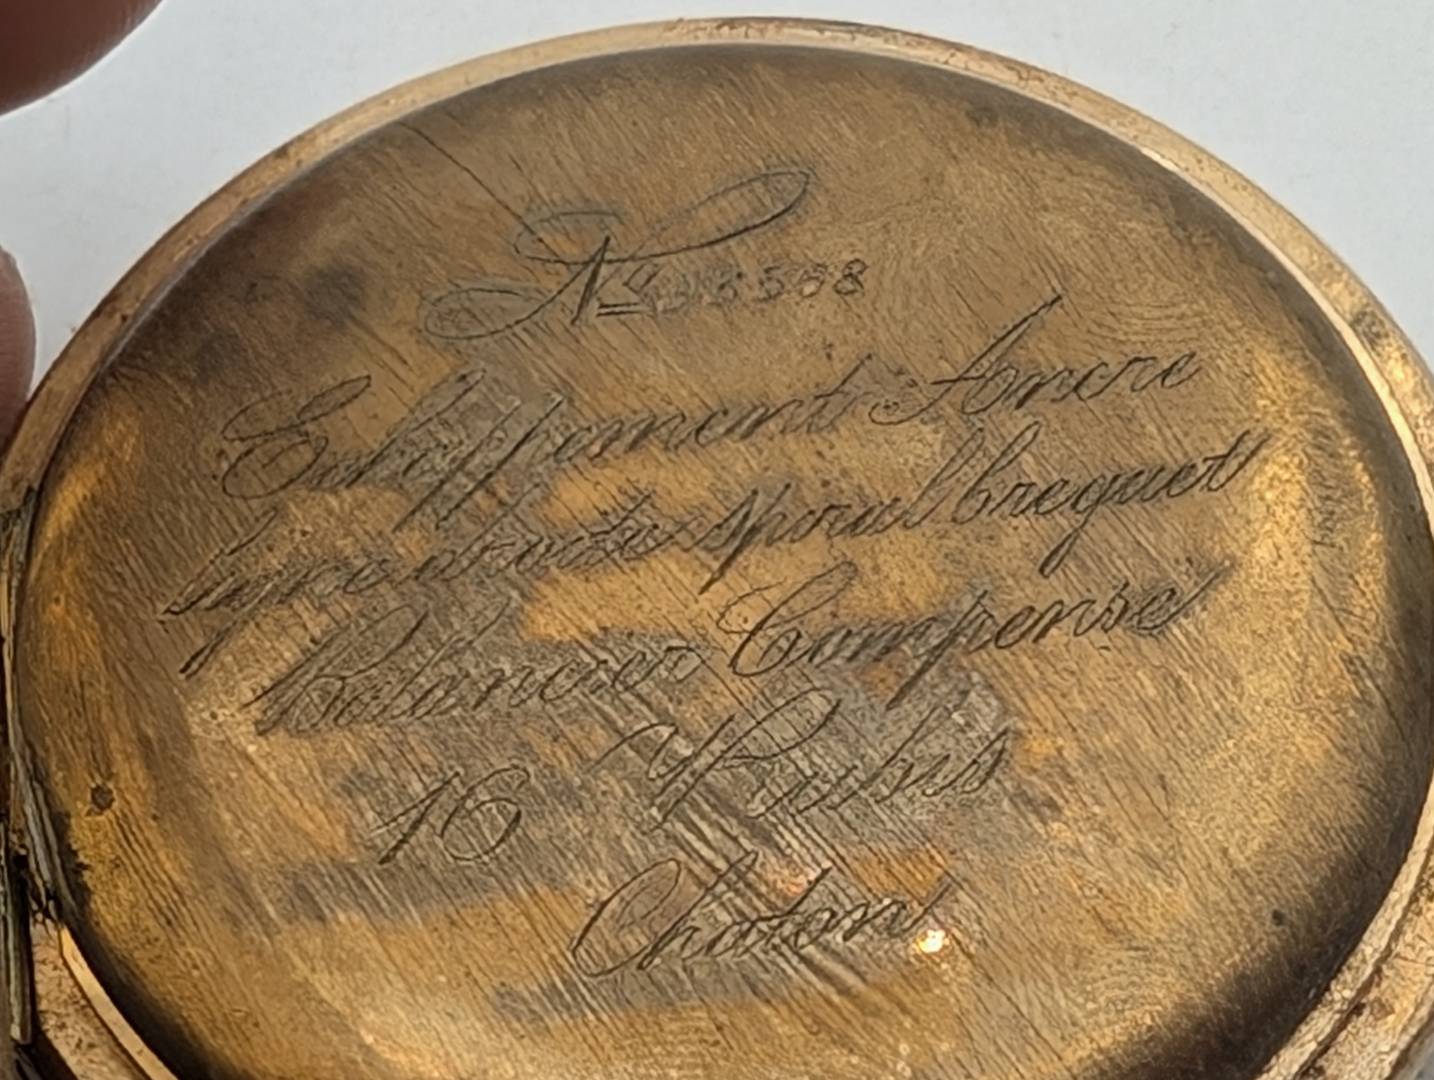 No
Echappement Ancre
ligne droite spiral breguet
Balancier Compensé
16 Rubis
Chaton